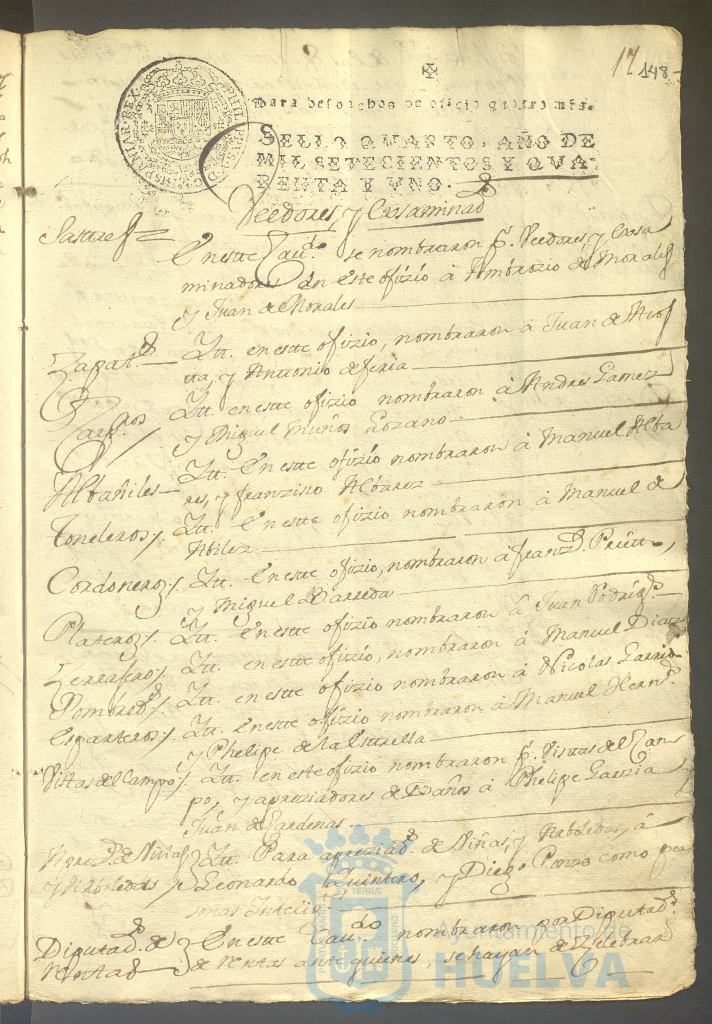 17 148
PHILIPPUS V D G HISPANIAR REX
Para despachos de oficio quatro mrs.
SELLO QVARTO, AÑO DE
MIL SETECIENTOS Y QVA-
RENTA Y VNO.
Veedores, y Exsaminad
Sastres En este Caudo. se nombraron pr. Veedores, y Exsa
minadores en este ofizio à Ambrozio de Morales
y Juan de Morales
Zapats. Ytt. en este ofizio, nombraron à Juan de
ta, y Antonio de feria
Carpros Ytt. en este ofizio nombraron à Andres Gamez
y Miguel Muños Lozano
Albañiles Ytt. En este ofizio nombraron à Manuel Alba
res, y franzisco Albarez
Toneleros Ytt. En este ofizio nombraron à Manuel de
Abilez
Cordoneros Ytt. En este ofizio, nombraron à franzo. Prieto,
y Miguel Barreda
Plateros Ytt. En este ofizio nombraron à Juan Rodrigs.
Zerrageros Ytt. en este ofizio, nombraron à Manuel Diaz
Ytt. en este ofizio nombraron à Nicolas Garrido
Esparteros Ytt. En este ofizio nombraron à Manuel Hernz.
y Phelipe de la Estrella
Vistas del Campo Ytt. en este ofizio nombraron pr. Vistas del Can
po, y apreziadores de Daños à Phelipe Garzia
Juan de Cardenas
Aprezds. de Viñas Ytt. Para apreziads. de Viñas, y Arboledas, à
y Arboledas Leonardo Quintero, y Diego Ponze como per
sonas Intelig
Diputads. de En este Caudo nombraron por Diputads.
Rentas de Rentas ante quienes, se hayan de Zelebrar
Ayuntamiento de
HUELVA